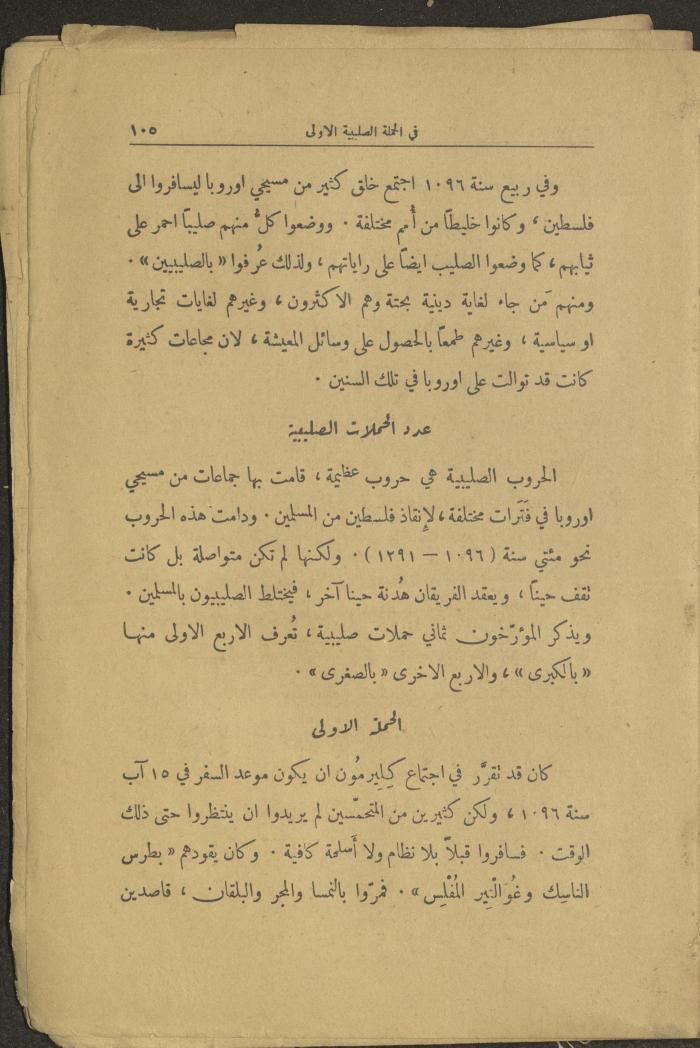 في الحملة الصليبية الاولى ١٠٥
وفي ربيع سنة ١٠٩٦ اجتمع خلق كثير من مسيحيي اوروبا ليسافروا الى
فلسطين ، وكانوا خليطًا من أُمم مختلفة . ووضعوا كلٌّ منهم صليبًا احمر على
ثيابهم ، كما وضعوا الصليب ايضًا على راياتهم ، ولذلك عُرفوا « بالصليبيين » .
ومنهم مَن جاء لغاية دينية بحتة وهم الاكثرون ، وغيرهم لغايات تجارية
او سياسية ، وغيرهم طمعًا بالحصول على وسائل المعيشة ، لان مجاعات كثيرة
كانت قد توالت على اوروبا في تلك السنين .
عدد الحملات الصليبية
الحروب الصليبية هي حروب عظيمة ، قامت بها جماعات من مسيحيي
اوروبا في فَتَرات مختلفة ، لإنقاذ فلسطين من المسلمين . ودامت هذه الحروب
نحو مئتي سنة ( ١٠٩٦ — ١٢٩١ ) . ولكنها لم تكن متواصلة بل كانت
تقف حينًا ، ويعقد الفريقان هُدنة حينا آخر ، فيختلط الصليبيون بالمسلمين .
ويذكر المؤرّخون ثماني حملات صليبية ، تُعرف الاربع الاولى منها
« بالكبرى » ، والاربع الاخرى « بالصغرى » .
الحملة الاولى
كان قد تقرَّر في اجتماع كِلِيرمُون ان يكون موعد السفر في ١٥ آب
سنة ١٠٩٦ ، ولكن كثيرين من المتحمّسين لم يريدوا ان ينتظروا حتى ذلك
الوقت . فسافروا قبلاً بلا نظام ولا أَسلحة كافية . وكان يقودهم « بطرس
الناسِك وغُوالْتِير المُفْلِس » . فمرّوا بالنمسا والمجر والبلقان ، قاصدين